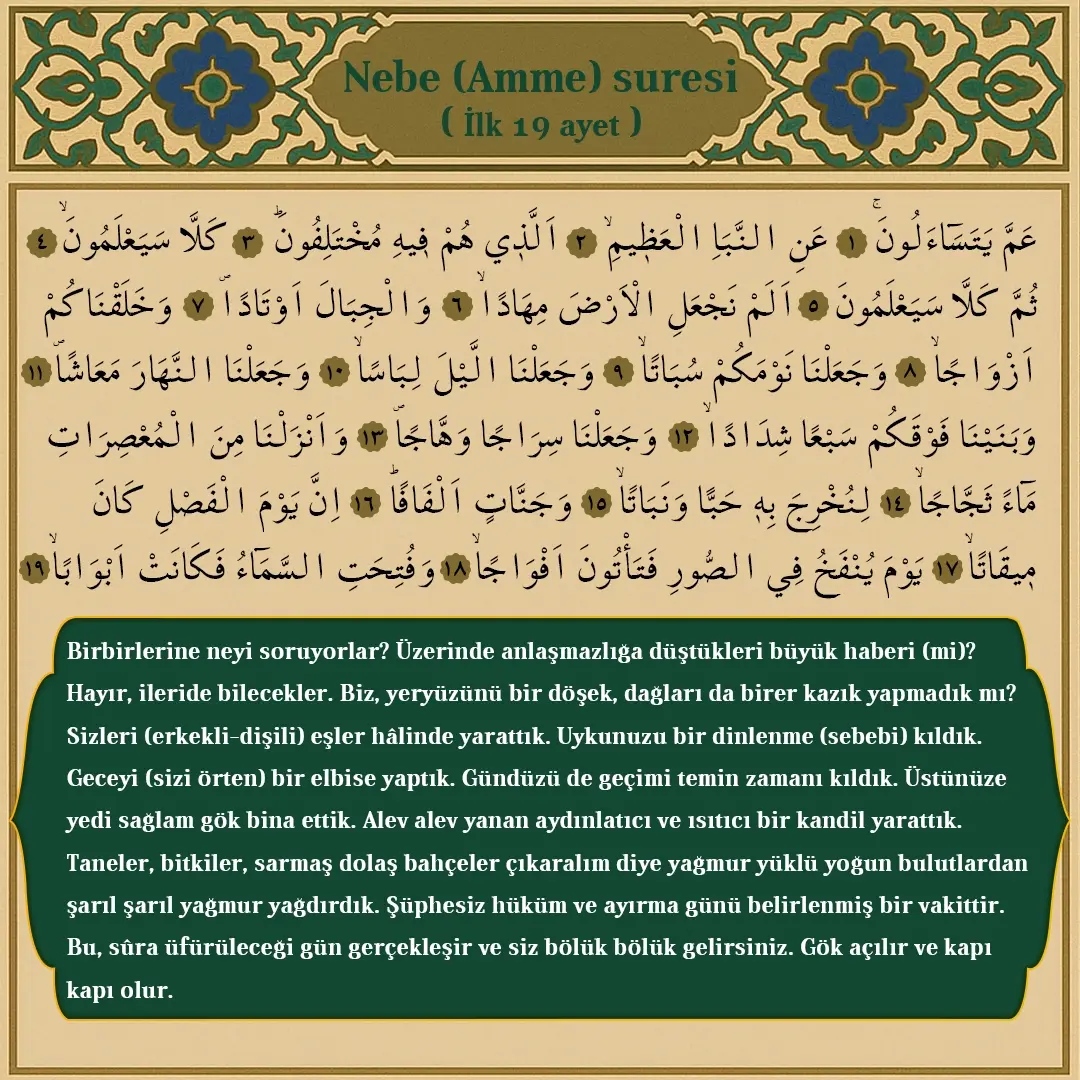 Nebe (Amme) suresi
( İlk 19 ayet )
عَمَّ يَتَسَٓاءَلُونَۚ ١ عَنِ النَّبَأِ الْعَظ۪يمِۙ ٢ اَلَّذ۪ي هُمْ ف۪يهِ مُخْتَلِفُونَۜ ٣ كَلَّا سَيَعْلَمُونَۙ ٤
ثُمَّ كَلَّا سَيَعْلَمُونَ ٥ اَلَمْ نَجْعَلِ الْاَرْضَ مِهَادًاۙ ٦ وَالْجِبَالَ اَوْتَادًاۖ ٧ وَخَلَقْنَاكُمْ
اَزْوَاجًاۙ ٨ وَجَعَلْنَا نَوْمَكُمْ سُبَاتًاۙ ٩ وَجَعَلْنَا الَّيْلَ لِبَاسًاۙ ١٠ وَجَعَلْنَا النَّهَارَ مَعَاشًاۖ ١١
وَبَنَيْنَا فَوْقَكُمْ سَبْعًا شِدَادًاۙ ١٢ وَجَعَلْنَا سِرَاجًا وَهَّاجًاۖ ١٣ وَاَنْزَلْنَا مِنَ الْمُعْصِرَاتِ
مَٓاءً ثَجَّاجًاۙ ١٤ لِنُخْرِجَ بِه۪ حَبًّا وَنَبَاتًاۙ ١٥ وَجَنَّاتٍ اَلْفَافًاۜ ١٦ اِنَّ يَوْمَ الْفَصْلِ كَانَ
م۪يقَاتًاۙ ١٧ يَوْمَ يُنْفَخُ فِي الصُّورِ فَتَأْتُونَ اَفْوَاجًاۙ ١٨ وَفُتِحَتِ السَّمَٓاءُ فَكَانَتْ اَبْوَابًاۙ ١٩
Birbirlerine neyi soruyorlar? Üzerinde anlaşmazlığa düştükleri büyük haberi (mi)?
Hayır, ileride bilecekler. Biz, yeryüzünü bir döşek, dağları da birer kazık yapmadık mı?
Sizleri (erkekli-dişili) eşler hâlinde yarattık. Uykunuzu bir dinlenme (sebebi) kıldık.
Geceyi (sizi örten) bir elbise yaptık. Gündüzü de geçimi temin zamanı kıldık. Üstünüze
yedi sağlam gök bina ettik. Alev alev yanan aydınlatıcı ve ısıtıcı bir kandil yarattık.
Taneler, bitkiler, sarmaş dolaş bahçeler çıkaralım diye yağmur yüklü yoğun bulutlardan
şarıl şarıl yağmur yağdırdık. Şüphesiz hüküm ve ayırma günü belirlenmiş bir vakittir.
Bu, sûra üfürüleceği gün gerçekleşir ve siz bölük bölük gelirsiniz. Gök açılır ve kapı
kapı olur.